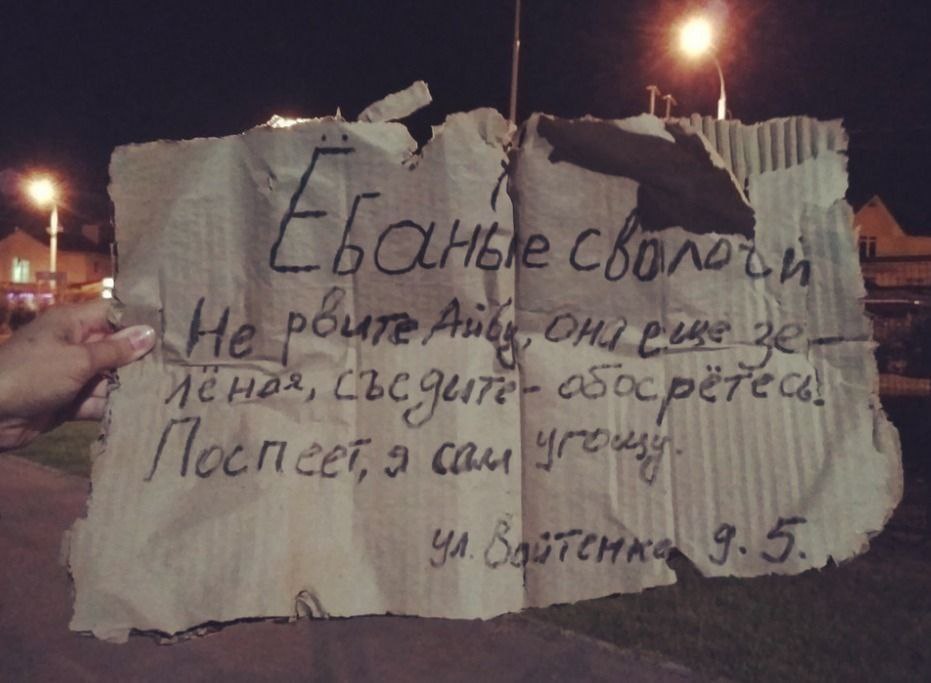 Ёбаные сволочи
Не рвите Айву, она еще зе-
лёная, съедите - обосрётесь!
Поспеет, я сам угощу.
ул. Войтенко д. 5.